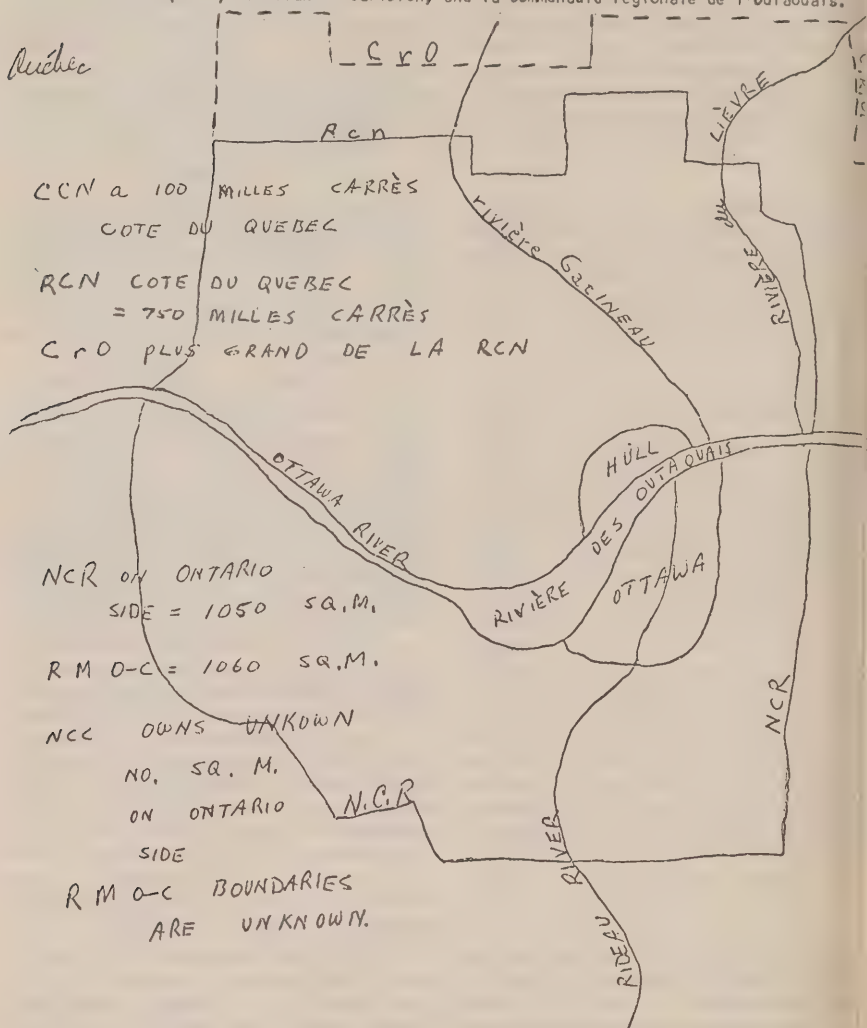 and la Communauté régionale de l'Outaouais.
Québec
CrO
Rcn
CCN a 100 MILLES CARRÈS
COTE DU QUEBEC
RCN COTE DU QUEBEC
= 750 MILLES CARRÈS
CrO PLUS GRAND DE LA RCN
rivière GATINEAU
RIVIÈRE du LIÈVRE
OTTAWA RIVER
HULL
RIVIÈRE DES OUTAOUAIS
OTTAWA
NCR ON ONTARIO
SIDE = 1050 SQ.M.
R M O-C = 1060 SQ.M.
NCC OWNS UNKOWN
NO. SQ. M.
ON ONTARIO
SIDE
R M O-C BOUNDARIES
ARE UNKNOWN.
N.C.R
NCR
RIDEAU RIVER